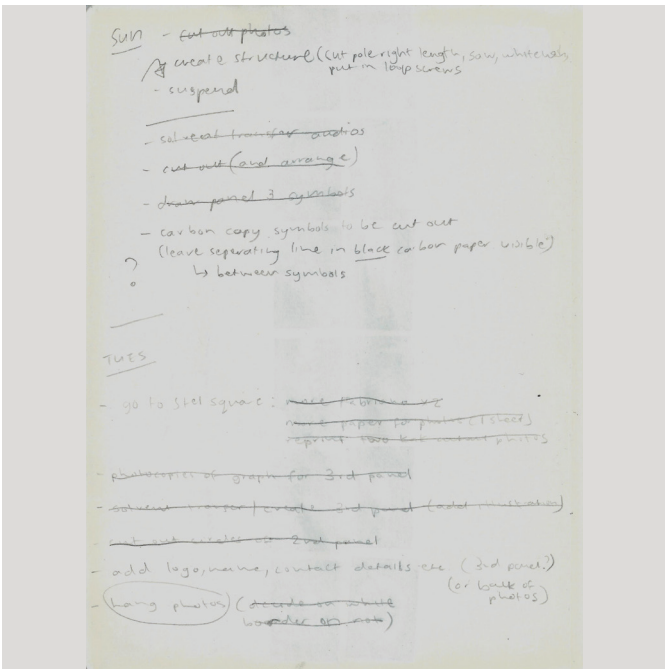 SUN - cut out photos
create structure (cut pole right length, saw, whitewash,
put in loop screws
- suspend
- solvent transfer audios
- cut out (and arrange)
- draw panel 3 symbols
- carbon copy symbols to be cut out
(leave seperating line in black carbon paper visible?)
? ↳ between symbols
TUES
- go to Stel square: more fabric
more paper for photos (1 sheet)
reprint photos
- photocopies of graph for 3rd panel
- solvent transfer / create 3rd panel (add illustration)
- cut out circles on 2nd panel
- add logo, name, contact details etc. (3rd panel?)
(or back of
photos)
- hang photos (decide on white
border or not)